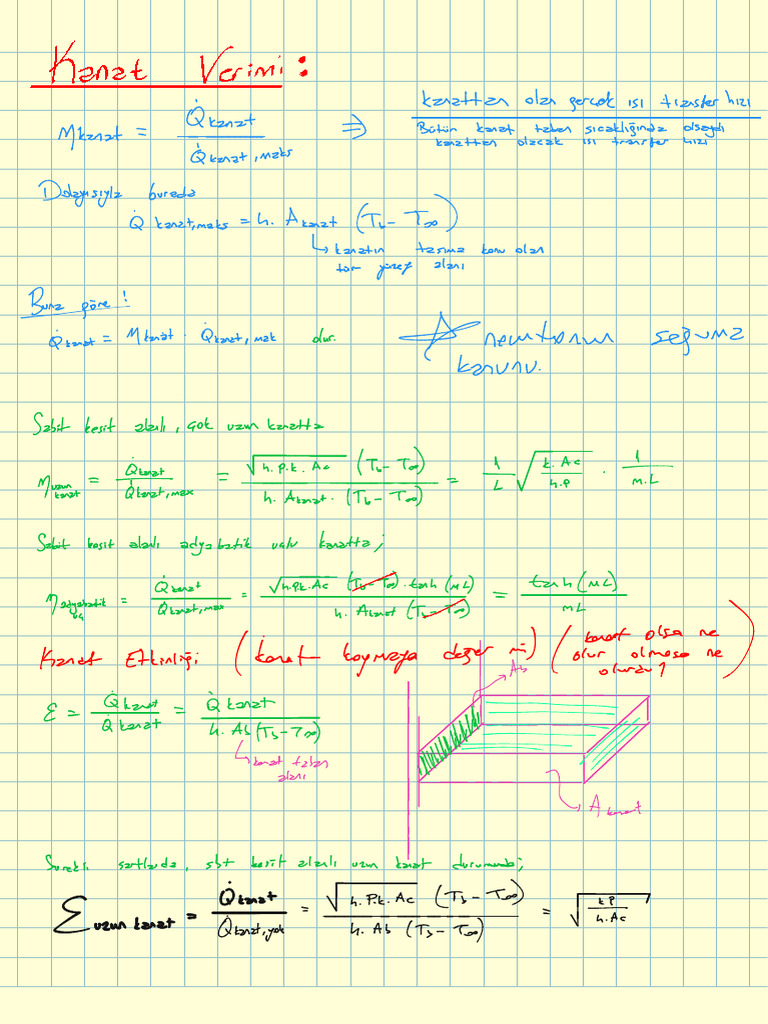 Kanat Verimi:
ηkanat = Q̇kanat / Q̇kanat,maks ⇒ kanattan olan gerçek ısı transfer hızı / Bütün kanat taban sıcaklığında olsaydı kanattan olacak ısı transfer hızı
Dolayısıyla burada
Q̇ kanat,maks = h. Akanat (Tb - T∞)
↳ kanatın taşıma konu olan
tüm yüzey alanı
Buna göre!
Q̇kanat = ηkanat · Q̇kanat,mak dur.
☆ newtonun soğuma
kanunu.
Sabit kesit alanlı, çok uzun kanatta
ηuzun kanat = Q̇kanat / Q̇kanat,max = √h.p.k.Ac (Tb - T∞) / h. Akanat. (Tb - T∞) = 1/L √(k.Ac / h.p) · 1/m.L
Sabit kesit alanlı adyabatik uçlu kanatta;
ηadyabatik uç = Q̇kanat / Q̇kanat,max = √h.p.k.Ac (Tb - T∞) · tanh (mL) / h. Akanat (Tb - T∞) = tanh(mL) / mL
Kanat Etkinliği (kanat koymaya değer mi) (kanat olsa ne
olur olmasa ne
olurdu?)
Ab
ε = Q̇kanat / Q̇kanat = Q̇kanat / h. Ab (Tb - T∞)
↳ kanat taban
alanı
Akanat
Sürekli şartlarda, sbt kesit alanlı uzun kanat durumunda;
εuzun kanat = Q̇kanat / Q̇kanat,yok = √h.P.k.Ac (Tb - T∞) / h. Ab (Tb - T∞) = √(kP / h.Ac)